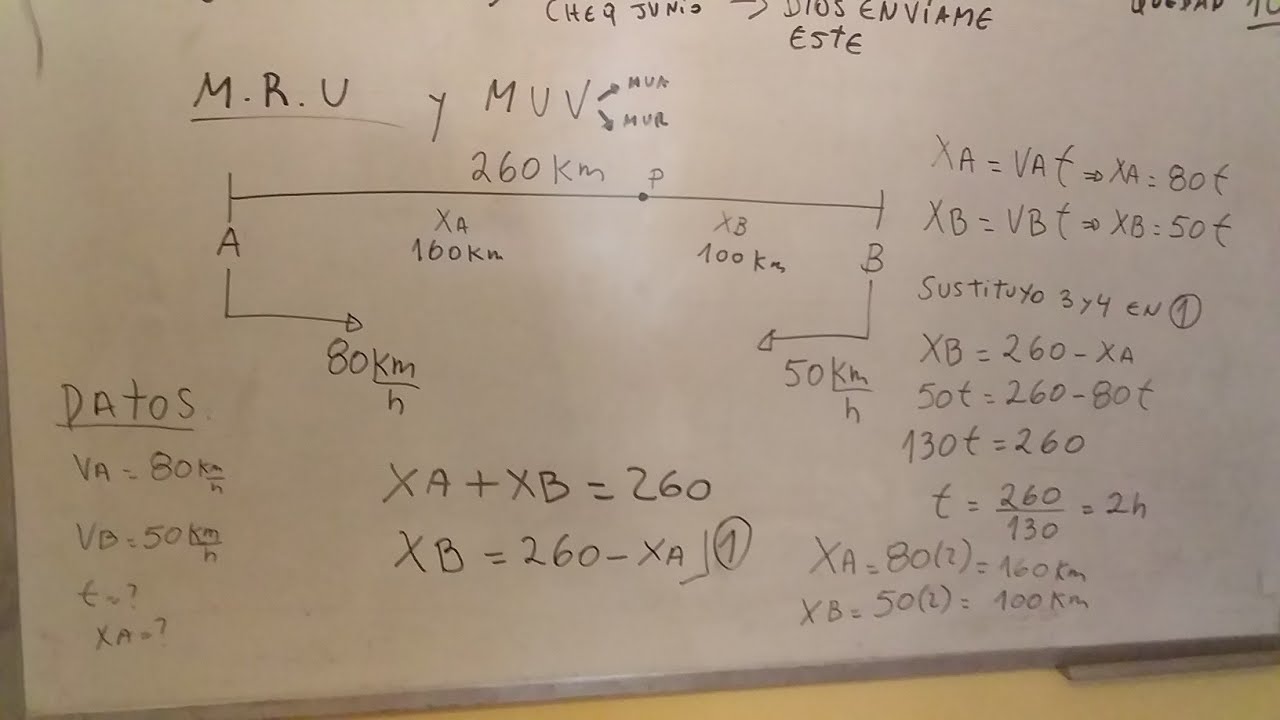 CHEQ JUNIO → DIOS ENVÍAME
ESTE
QUEDAD 10
M.R.U y MUV
MUA
MUR
260 Km P
XA
160 Km
XB
100 Km
A
B
80 Km/h
50 Km/h
DATOS
VA = 80 Km/h
VB = 50 Km/h
t = ?
XA = ?
XA + XB = 260
XB = 260 - XA ①
XA = VA t ⇒ XA = 80t
XB = VB t ⇒ XB = 50t
SUSTITUYO 3 y 4 EN ①
XB = 260 - XA
50t = 260 - 80t
130t = 260
t = 260/130 = 2h
XA = 80(2) = 160 Km
XB = 50(2) = 100 Km